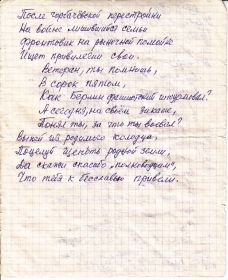 После горбачёвской перестройки
На войне лишившийся семьи
Фронтовик на рыночной помойке
Ищет привилегии свои.
Ветеран, ты помнишь,
В сорок пятом,
Как Берлин фашистский штурмовал?
А сегодня, на своём закате,
Понял ты, за что ты воевал?
Выпей из родимого колодца,
Поцелуй щепоть родной земли,
Да скажи спасибо „полководцам",
Что тебя к бесславью привели.